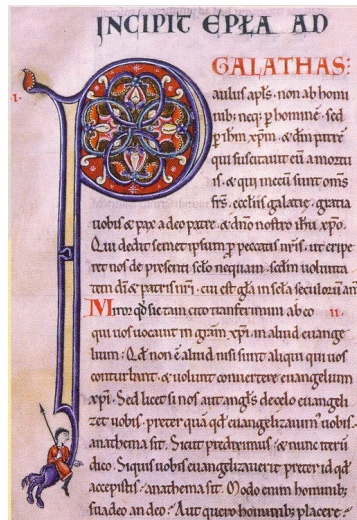 INCIPIT EPLA AD
GALATHAS:
.I. Paulus apłs. non ab homi
nib; neq; p homine. sed
p ihm xpm. & dm patre
qui suscitauit eū a mortu
is. & qui mecū sunt oms
frs. ecclīs galatie. gratia
uobis & pax a deo patre. & dno nostro ihu xpo.
Qui dedit semet ipsum p peccatis nris. ut eripe
ret nos de presenti sclo nequam. scdm uolunta
tem di & patris nri. cui est gla in scla seculorum am
Miror qd sic tam cito transferimini ab eo II.
qui uos uocauit in gram xpi. in aliud euange
lium: Qd non ē aliud nisi sunt aliqui qui uos
conturbant. & uolunt conuertere euangelium
xpi. Sed licet si nos aut angls de celo euangeli
zet uobis. preter quā qd euangelizauim uobis.
anathema sit. Sicut prediximus. & nunc iterū
dico. Siquis uobis euangelizauerit preter id qd
accepistis. anathema sit. Modo enim hominib;
suadeo an deo. Aut quero hominib; placere